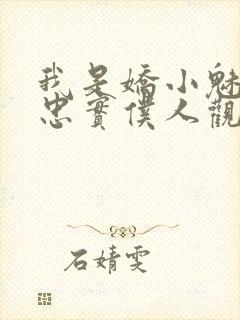 我是嬌小魅
忠實僕人觀
石婧雯